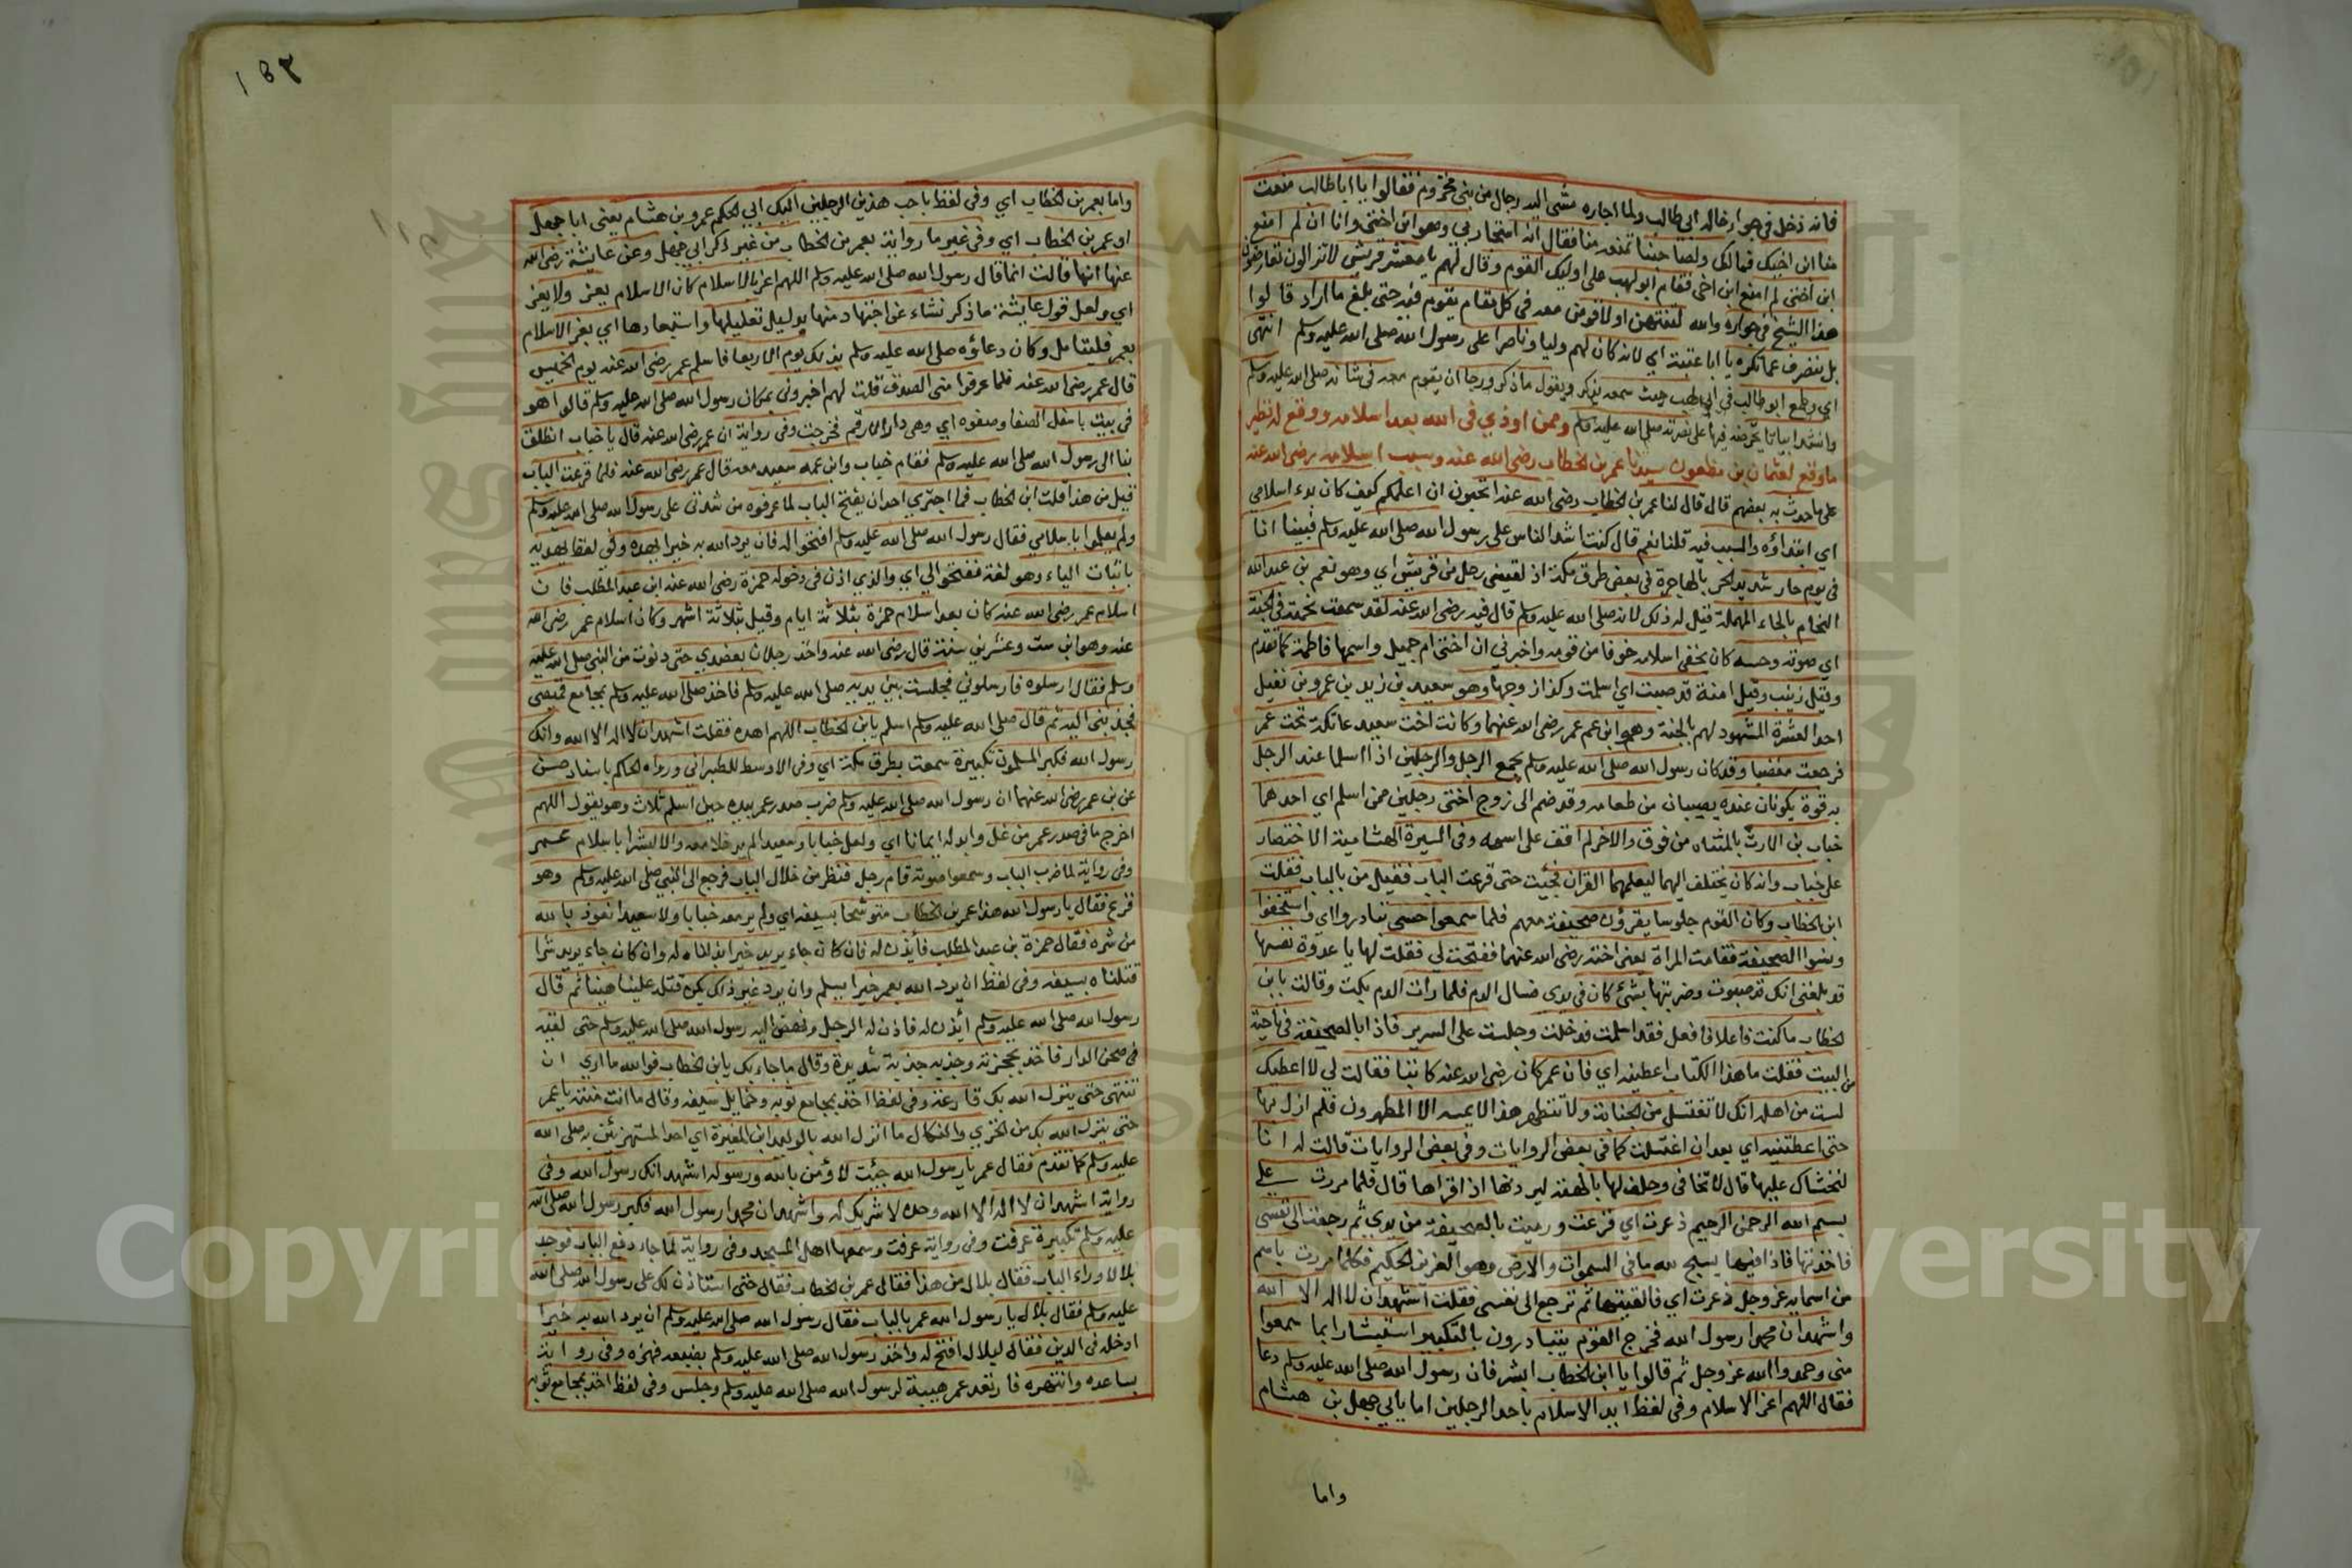 فانه دخل في جوار خاله ابي طالب ولما اجاره مشى اليه رجال من بني مخزوم فقالوا يا ابا طالب منعت
منا ابن اخيك فمالك ولصاحبنا تمنعه منا فقال انه استجار بي وهو ابن اختي وانا ان لم امنع
ابن اختي لم امنع ابن اخي فقام ابو لهب على اوليك القوم وقال لهم يا معشر قريش لا تزالون تعارضون
هذا الشيخ في جواره والله لتنتهن او لاقومن معه في كل مقام يقوم فيه حتى يبلغ ما اراد قالوا
بل ننصرف عما تكره يا ابا عتبة اي لانه كان لهم وليا وناصرا على رسول الله صلى الله عليه وسلم انتهى
اي وطمع ابو طالب في ابي لهب حيث سمعه يذكر ويقول ما ذكر ورجا ان يقوم معه في شانه صلى الله عليه وسلم
وانشد ابياتا يحرضه فيها على نصرته صلى الله عليه وسلم وممن اوذي في الله بعد اسلامه ووقع له نظير
ما وقع لعثمان بن مظعون سيدنا عمر بن الخطاب رضي الله عنه وسبب اسلامه رضي الله عنه
على ما حدث به بعضهم قال قال لنا عمر بن الخطاب رضي الله عنه اتحبون ان اعلمكم كيف كان بدء اسلامي
اي ابتداؤه والسبب فيه قلنا نعم قال كنت اشد الناس على رسول الله صلى الله عليه وسلم فبينا انا
في يوم حار شديد الحر بالهاجرة في بعض طرق مكة اذ لقيني رجل من قريش اي وهو نعيم بن عبد الله
النحام بالحاء المهملة قيل له ذلك لانه صلى الله عليه وسلم قال فيه رضي الله عنه لقد سمعت نحمته في الجنة
اي صوته وحسه كان يخفي اسلامه خوفا من قومه واخبرني ان اختي ام جميل واسمها فاطمة كما تقدم
وقيل زينب وقيل امنة قد صبت اي اسلمت وكذا زوجها وهو سعيد بن زيد بن عمرو بن نفيل
احد العشرة المشهود لهم بالجنة وهو ابن عم عمر رضي الله عنهما وكانت اخت سعيد عاتكة تحت عمر
فرجعت مغضبا وقد كان رسول الله صلى الله عليه وسلم يجمع الرجل والرجلين اذا اسلما عند الرجل
به قوة يكونان عنده يصيبان من طعامه وقد ضم الى زوج اختي رجلين ممن اسلم اي احدهما
خباب بن الارت بالمثناه من فوق والاخر لم اقف على اسمه وفي السيرة الهشامية الاختصار
على خباب وانه كان يختلف اليهما ليعلمهما القران فجيت حتى قرعت الباب فقيل من بالباب فقلت
ابن الخطاب وكان القوم جلوسا يقرؤن صحيفة معهم فلما سمعوا حسي تبادروا اي واستخفوا
ونسوا الصحيفة فقامت المراة يعني اخته رضي الله عنهما ففتحت لي فقلت لها يا عدوة نفسها
قد بلغني انك قد صبوت وضربتها بشئ كان في يدي فسال الدم فلما رات الدم بكت وقالت يا بن
الخطاب ما كنت فاعلا فافعل فقد اسلمت فدخلت وجلست على السرير فاذا بالصحيفة في ناحية
من البيت فقلت ما هذا الكتاب اعطينه اي فان عمر كان رضي الله عنه كاتبا فقالت لي لا اعطيك
لست من اهله انك لا تغتسل من الجنابة ولا تتطهر هذا لا يمسه الا المطهرون فلم ازل بها
حتى اعطتنيه اي بعد ان اغتسلت كما في بعض الروايات وفي بعض الروايات قالت له انا
لنخشاك عليها قال لا تخافي وحلف لها بالهته ليردنها اذا قراها قال فلما مررت على
بسم الله الرحمن الرحيم ذعرت اي فزعت ورميت بالصحيفة من يدي ثم رجعت الى نفسي
فاخذتها فاذا فيها يسبح لله ما في السموات والارض وهو العزيز الحكيم فكلما مررت باسم
من اسمايه عز وجل ذعرت اي فالقيتها ثم ترجع الى نفسي فقلت اشهد ان لا اله الا الله
واشهد ان محمدا رسول الله فخرج القوم يتبادرون بالتكبير استبشارا بما سمعوا
مني وحمدوا الله عز وجل ثم قالوا يا ابن الخطاب ابشر فان رسول الله صلى الله عليه وسلم دعا
فقال اللهم اعز الاسلام وفي لفظ ايد الاسلام باحد الرجلين اما بابي جهل بن هشام
واما
١٥٢
واما بعمر بن الخطاب اي وفي لفظ باحب هذين الرجلين اليك ابي الحكم عمرو بن هشام يعني ابا جهل
او عمر بن الخطاب اي وفي غير ما رواية بعمر بن الخطاب من غير ذكر ابي جهل وعن عايشة رضي الله
عنها انها قالت انما قال رسول الله صلى الله عليه وسلم اللهم اعز عمر بالاسلام لان الاسلام يعز ولا يعز
اي ولعل قول عايشة ما ذكر نشاء عن اجتهاد منها بدليل تعليلها واستبعادها اي يعز الاسلام
بعمر فليتامل وكان دعاؤه صلى الله عليه وسلم بذلك يوم الاربعا فاسلم عمر رضي الله عنه يوم الخميس
قال عمر رضي الله عنه فلما عرفوا مني الصدق قلت لهم اخبروني بمكان رسول الله صلى الله عليه وسلم قالوا هو
في بيت باسفل الصفا وصفوه اي وهي دار الارقم فخرجت وفي رواية ان عمر رضي الله عنه قال يا خباب انطلق
بنا الى رسول الله صلى الله عليه وسلم فقام خباب وابن عمه سعيد معه قال عمر رضي الله عنه فلما قرعت الباب
قيل من هذا قلت ابن الخطاب فما اجترى احد ان يفتح الباب لما عرفوه من شدتي على رسول الله صلى الله عليه وسلم
ولم يعلموا باسلامي فقال رسول الله صلى الله عليه وسلم افتحوا له فان يرد الله به خيرا يهده وفي لفظ يهديه
باثبات الياء وهو لغة ففتحوا لي اي والذي اذن في دخوله حمزة رضي الله عنه ابن عبد المطلب فان
اسلام عمر رضي الله عنه كان بعد اسلام حمزة بثلاثة ايام وقيل بثلاثة اشهر وكان اسلام عمر رضي الله
عنه وهو ابن ست وعشرين سنة قال رضي الله عنه واخذ رجلان بعضدي حتى دنوت من النبي صلى الله عليه
وسلم فقال ارسلوه فارسلوني فجلست بين يديه صلى الله عليه وسلم فاخذ صلى الله عليه وسلم بمجامع قميصي
فجذبني اليه ثم قال صلى الله عليه وسلم اسلم يا بن الخطاب اللهم اهده فقلت اشهد ان لا اله الا الله وانك
رسول الله فكبر المسلمون تكبيرة سمعت بطرق مكة اي وفي الاوسط للطبراني ورواه الحاكم باسناد حسن
عن بن عمر رضي الله عنهما ان رسول الله صلى الله عليه وسلم ضرب صدر عمر بيده حين اسلم ثلاث وهو يقول اللهم
اخرج ما في صدر عمر من غل وابدله ايمانا اي ولعل خبابا وسعيدا لم يدخلا معه والا لبشرا باسلام عمر
وفي رواية لما ضرب الباب وسمعوا صوته قام رجل فنظر من خلال الباب فرجع الى النبي صلى الله عليه وسلم وهو
فزع فقال يا رسول الله هذا عمر بن الخطاب متوشحا بسيفه اي ولم ير معه خبابا ولا سعيدا نعوذ بالله
من شره فقال حمزة بن عبد المطلب فأيذن له فان كان جاء يريد خيرا بذلناه له وان كان جاء يريد شرا
قتلناه بسيفه وفي لفظ ان يرد الله بعمر خيرا يسلم وان يرد غير ذلك يكون قتله علينا هينا ثم قال
رسول الله صلى الله عليه وسلم أيذن له فاذن له الرجل ونهض اليه رسول الله صلى الله عليه وسلم حتى لقيه
في صحن الدار فاخذ بحجزته وجذبه جذبة شديدة وقال ما جاء بك يا بن الخطاب فوالله ما ارى ان
تنتهي حتى ينزل الله بك قارعة وفي لفظ اخذ بمجامع ثوبه وحمايل سيفه وقال ما انت منته يا عمر
حتى ينزل الله بك من الخزي والنكال ما انزل الله بالوليد ابن المغيرة اي احد المستهزئين به صلى الله
عليه وسلم كما تقدم فقال عمر يا رسول الله جئت لاؤمن بالله ورسوله اشهد انك رسول الله وفي
رواية اشهد ان لا اله الا الله وحده لا شريك له واشهد ان محمدا رسول الله فكبر رسول الله صلى الله
عليه وسلم تكبيرة عرفت وفي رواية عرفت وسمعها اهل المسجد وفي رواية لما جاء دفع الباب فوجد
بلالا وراء الباب فقال بلال من هذا فقال عمر بن الخطاب فقال حتى استاذن لك على رسول الله صلى الله
عليه وسلم فقال بلال يا رسول الله عمر بالباب فقال رسول الله صلى الله عليه وسلم ان يرد الله به خيرا
ادخله في الدين فقال لبلال افتح له واخذ رسول الله صلى الله عليه وسلم بضبعه فهزه وفي رواية
بساعده وانتهره فارتعد عمر هيبة لرسول الله صلى الله عليه وسلم وجلس وفي لفظ اخذ بمجامع ثوبه